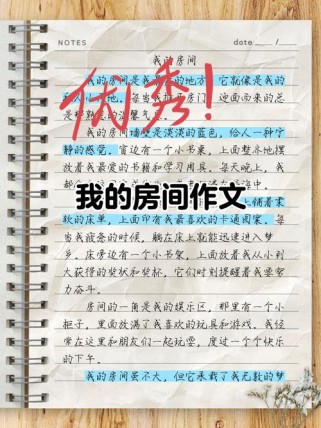 NOTES
date
我的房间
我的房间是我 的地方，它就像是我的
房门，迎面而来的总
优秀！
我的房间墙壁是淡淡的蓝色，给人一种宁
静的感觉。窗边有一个小书桌，上面整齐地摆
放着我最爱的书籍和学习用具。每天晚上，我
我的房间作文
上铺着柔
软的床单，上面印有我最喜欢的卡通图案。每
当我疲劳的时候，躺在床上就能迅速进入梦
乡。床旁边有一个小书架，上面放着我从小到
大获得的奖状和奖杯，它们时刻提醒着我要努
力奋斗。
房间的一角是我的娱乐区，那里有一个小
柜子，里面放满了我喜欢的玩具和游戏。我经
常在这里和朋友们一起玩耍，度过一个个快乐
的下午。
我的房间虽不大，但它承载了我无数的梦